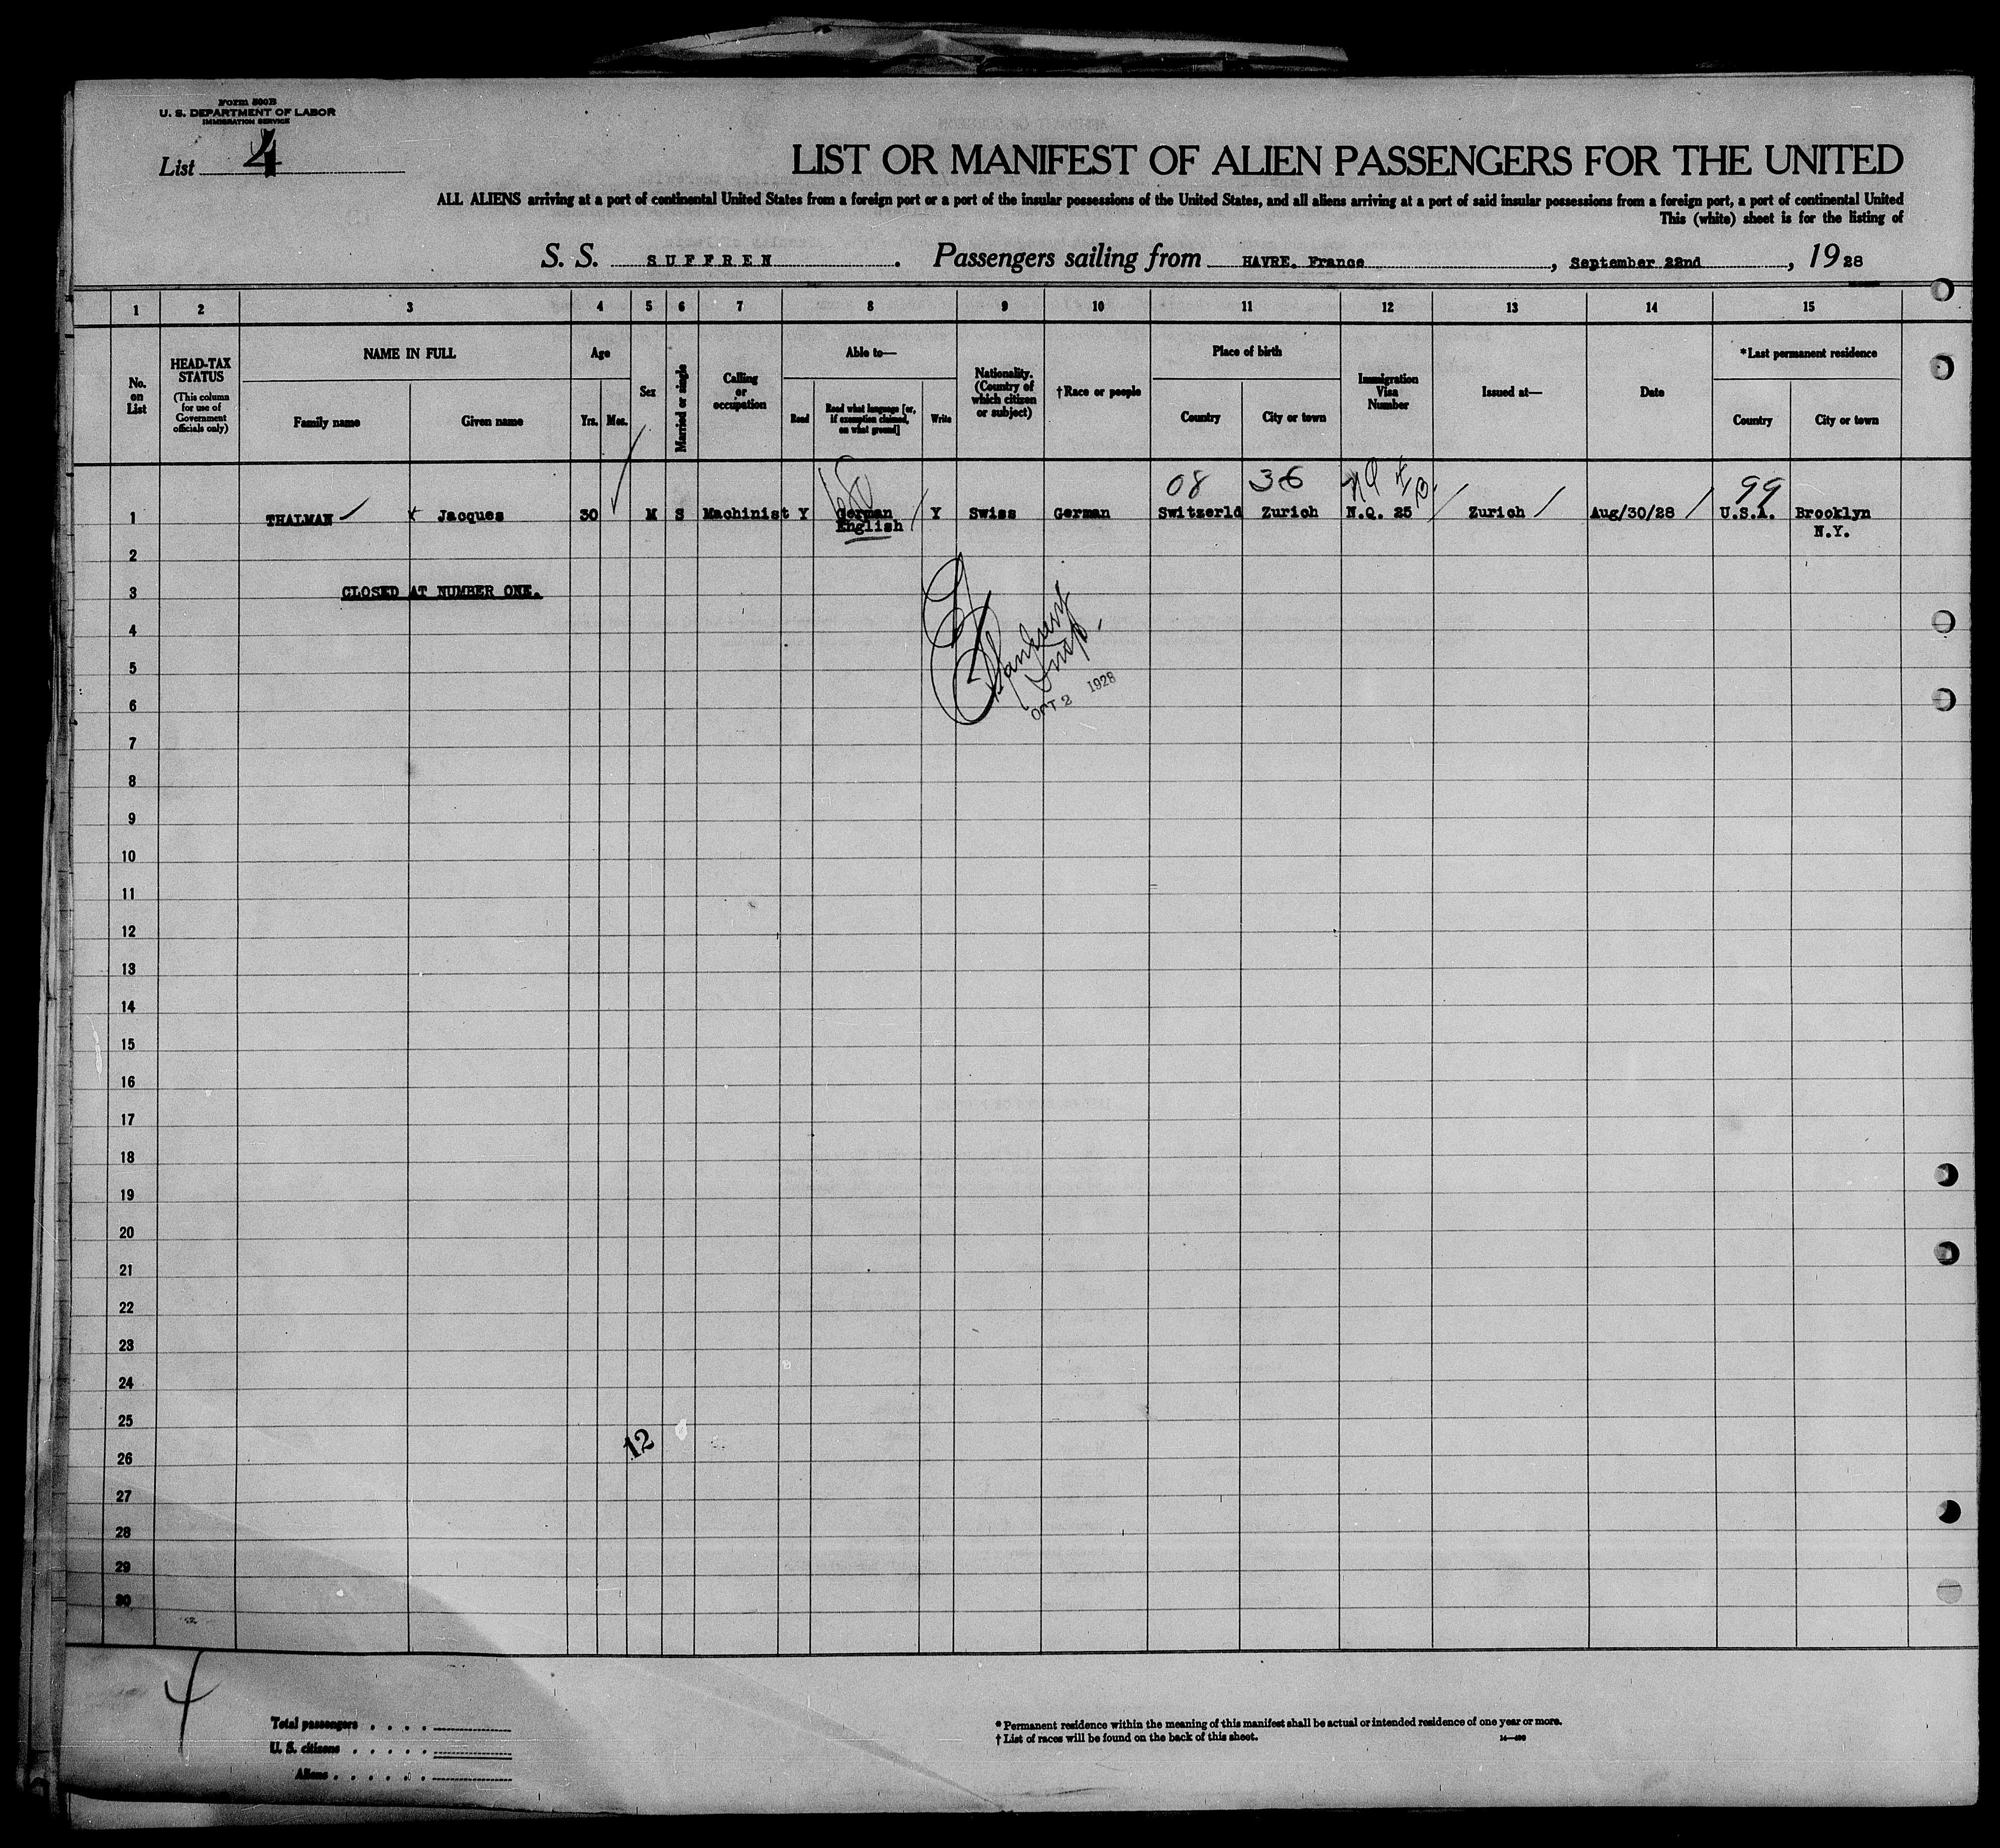 Form 500B
U. S. DEPARTMENT OF LABOR
IMMIGRATION SERVICE
List 4
LIST OR MANIFEST OF ALIEN PASSENGERS FOR THE UNITED
ALL ALIENS arriving at a port of continental United States from a foreign port or a port of the insular possessions of the United States, and all aliens arriving at a port of said insular possessions from a foreign port, a port of continental United
This (white) sheet is for the listing of
S. S. SUFFREN. Passengers sailing from HAVRE. France, September 22nd, 1928
1 2 3 4 5 6 7 8 9 10 11 12 13 14 15
No. on List
HEAD-TAX STATUS
(This column for use of Government officials only)
NAME IN FULL
Family name
Given name
Age
Yrs.
Mos.
Sex
Married or single
Calling or occupation
Able to—
Read
Read what language [or, if exemption claimed, on what ground]
Write
Nationality. (Country of which citizen or subject)
† Race or people
Place of birth
Country
City or town
Immigration Visa Number
Issued at—
Date
*Last permanent residence
Country
City or town
08 36 99
1 THALMAN Jacques 30 M S Machinist Y German Y Swiss German Switzerld Zurich N.Q. 25 Zurich Aug/30/28 U.S.A. Brooklyn
English N.Y.
2
3 CLOSED AT NUMBER ONE.
4
5
6
OCT 2 1928
7
8
9
10
11
12
13
14
15
16
17
18
19
20
21
22
23
24
25
12
26
27
28
29
30
4
Total passengers . . . .
U. S. citizens . . . . .
Aliens . . . . . .
* Permanent residence within the meaning of this manifest shall be actual or intended residence of one year or more.
† List of races will be found on the back of this sheet.